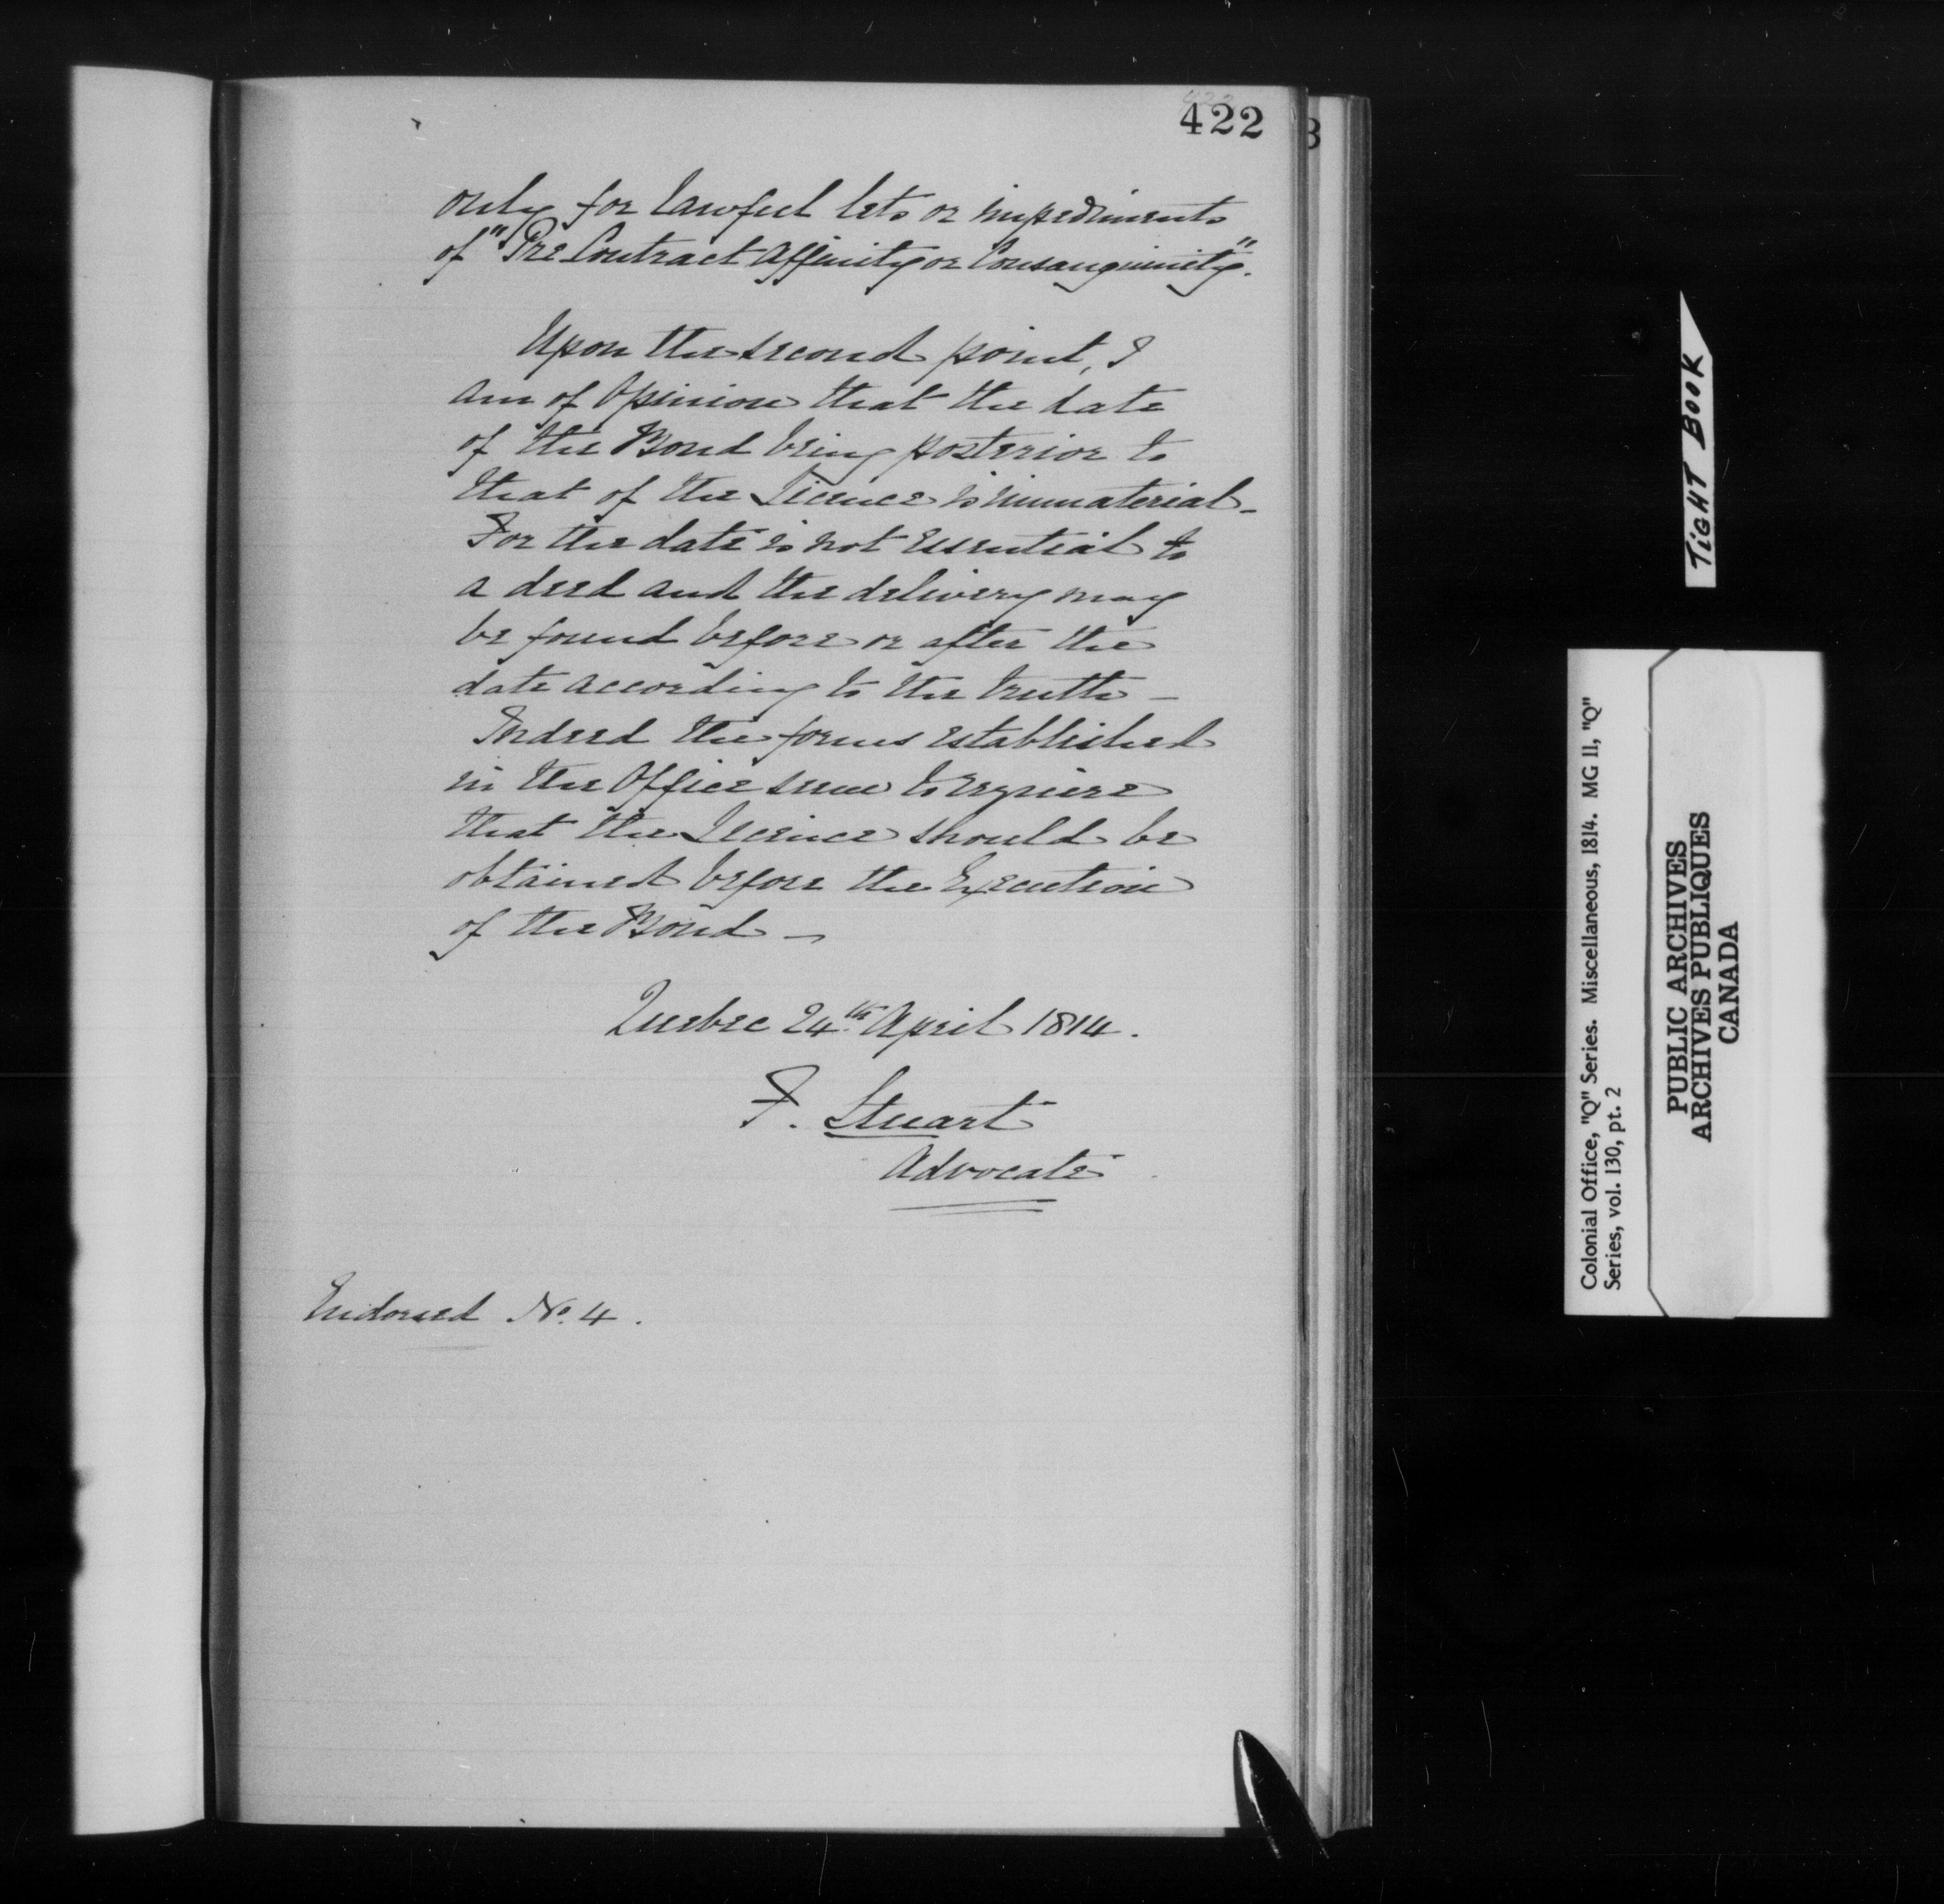 422
only for lawful lets or impediments
of "Pre Contract Affinity or Consanguinity".
Upon the second point, I
am of Opinion that the date
of the Bond being posterior to
that of the Licence is immaterial -
For the date is not essential to
a deed and the delivery may
be found before or after the
date according to the truth -
Indeed the forms established
in the Office seem to require
that the Licence should be
obtained before the Execution
of the Bond -
Quebec 24th April 1814.
Stuart
Advocate
Endorsed No. 4.
TIGHT BOOK
Colonial Office, "Q" Series. Miscellaneous, 1814. MG 11, "Q"
Series, vol. 130, pt. 2
PUBLIC ARCHIVES
ARCHIVES PUBLIQUES
CANADA